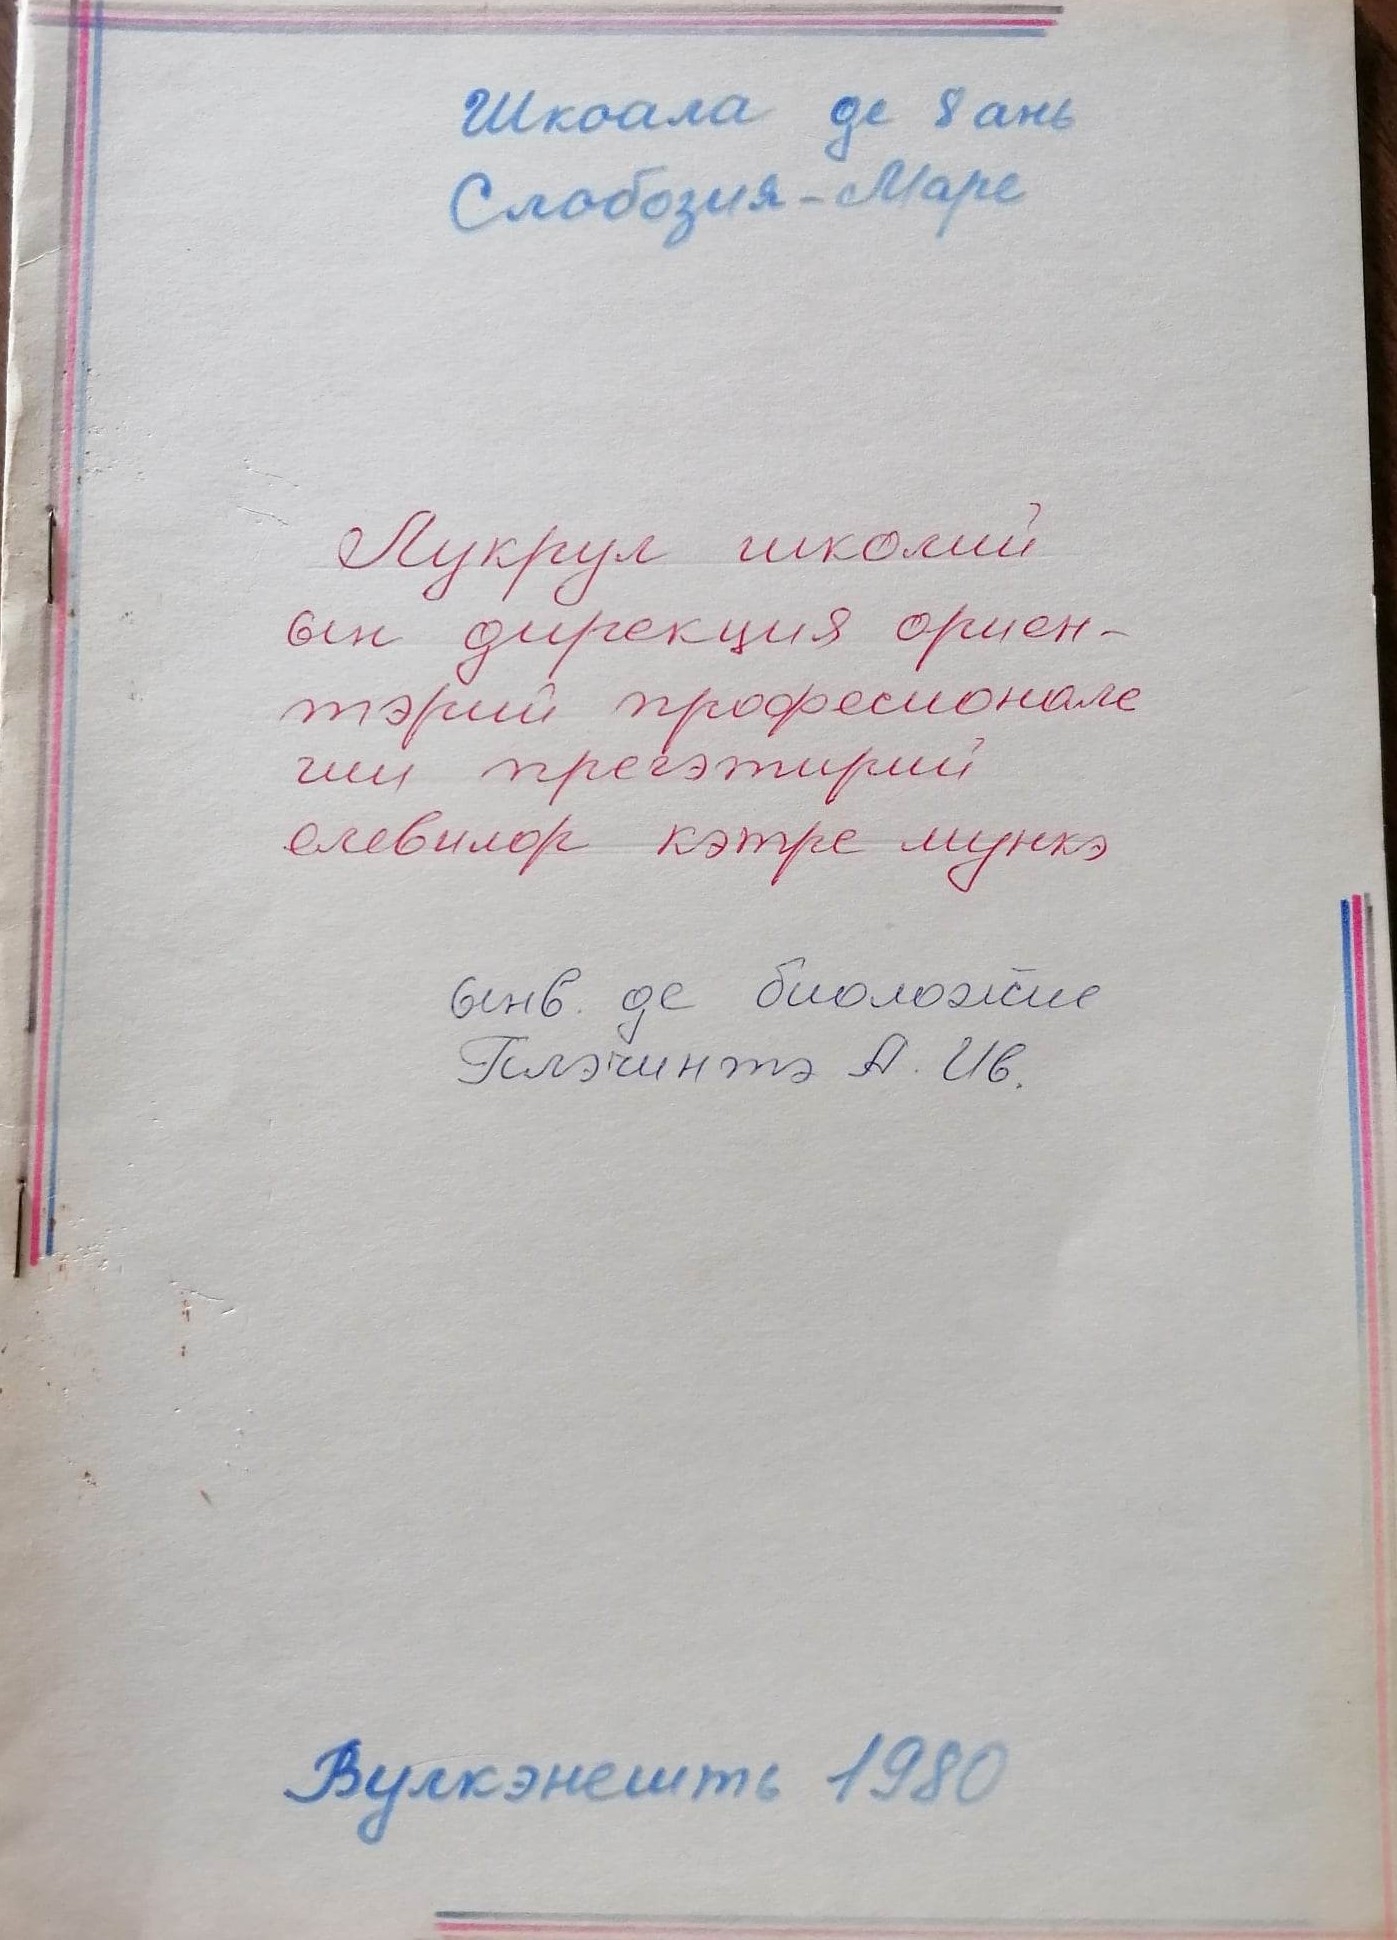 Школа де 8 ань
Слобозия-Маре
Лукрул школий
ын дирекция ориен-
тэрий професионале
ши прегэтирий
елевилор кэтре мункэ
ынв. де биоложие
Плэчинтэ А. Ив.
Вулкэнешть 1980